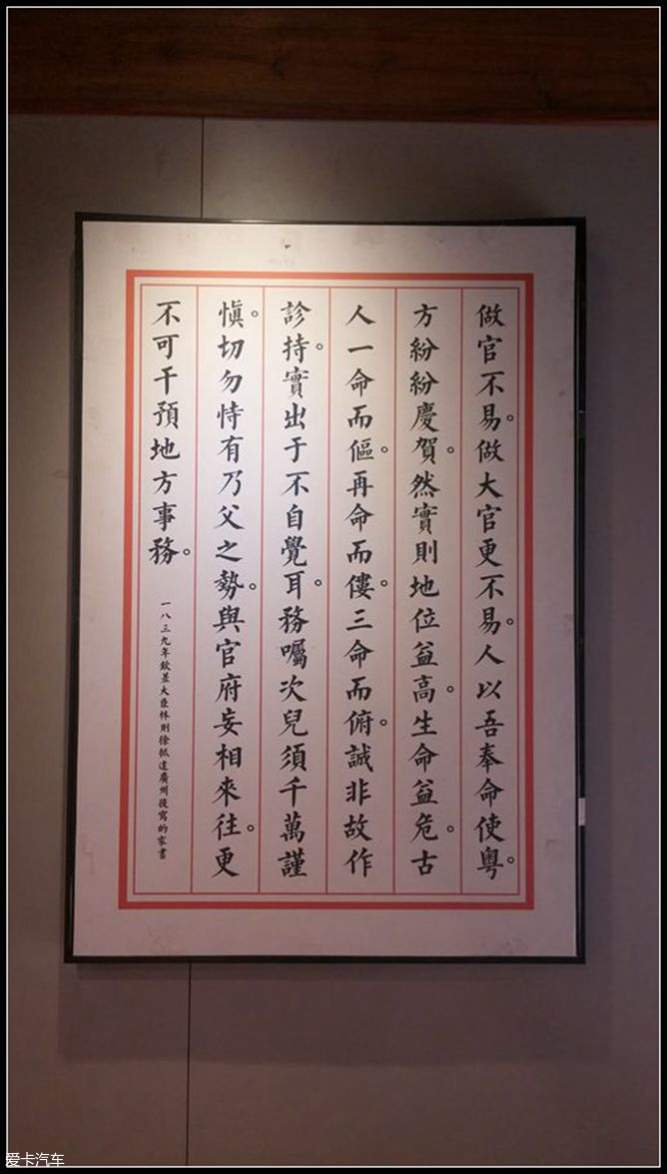 做官不易。做大官更不易。人以吾奉命使粵。
方紛紛慶賀。然實則地位益高。生命益危。古
人一命而傴。再命而僂。三命而俯。誠非故作
診持。實出于不自覺耳。務囑次兒須千萬謹
慎。切勿恃有乃父之勢。與官府妄相來往。更
不可干預地方事務。
一八三九年欽差大臣林則徐抵達廣州後寫的家書
爱卡汽车